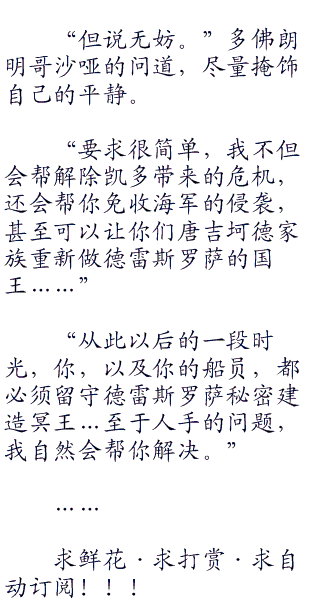 “但说无妨。”多佛朗
明哥沙哑的问道，尽量掩饰
自己的平静。
“要求很简单，我不但
会帮解除凯多带来的危机，
还会帮你免收海军的侵袭，
甚至可以让你们唐吉坷德家
族重新做德雷斯罗萨的国
王……”
“从此以后的一段时
光，你，以及你的船员，都
必须留守德雷斯罗萨秘密建
造冥王…至于人手的问题，
我自然会帮你解决。”
……
求鲜花·求打赏·求自
动订阅！！！